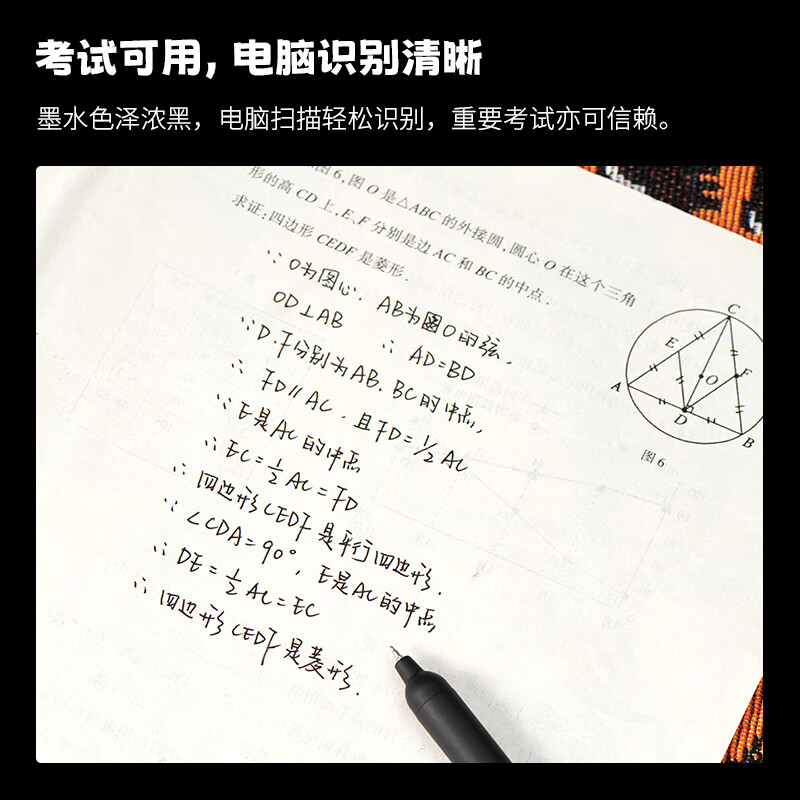 考试可用，电脑识别清晰
墨水色泽浓黑，电脑扫描轻松识别，重要考试亦可信赖。
图6,图O是△ABC的外接圆,圆心O在这个三角
形的高CD上,E、F分别是边AC和BC的中点.
求证:四边形CEDF是菱形.
∵O为圆心. AB为圆O的弦,
OD⊥AB ∴AD=BD
∵D.F分别为AB.BC的中点,
∴FD∥AC.且FD=1/2AC
∵E是AC的中点
∴EC=1/2AC=FD
∴四边形CEDF是平行四边形.
∵∠CDA=90°, E是AC的中点,
∴DE=1/2AC=EC
∴四边形CEDF是菱形.
C
E
F
A
O
D
B
图6